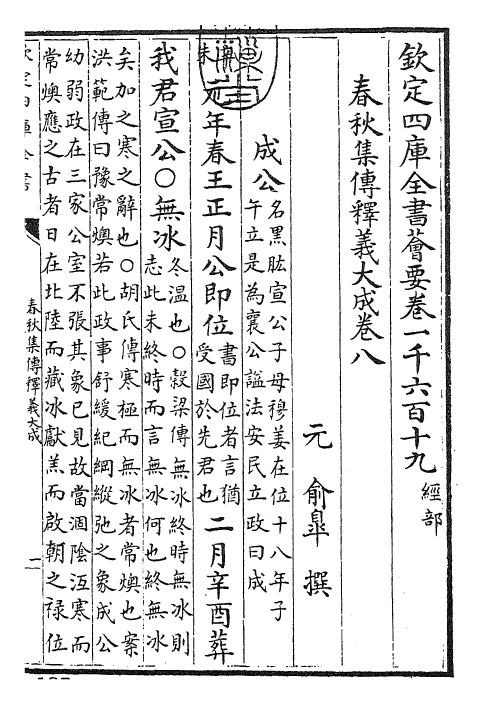 欽定四庫全書薈要卷一千六百十九 經部
春秋集傳釋義大成卷八
元 俞臯 撰
成公 名黑肱宣公子母穆姜在位十八年子
午立是為襄公諡法安民立政曰成
未 元年春王正月公即位 書即位者言猶
受國於先君也 二月辛酉葬
我君宣公○無冰 冬温也○穀梁傳無冰終時無冰則
志此未終時而言無冰何也終無冰
矣加之寒之辭也○胡氏傳寒極而無冰者常燠也案
洪範傳曰豫常燠若此政事舒緩紀綱縱弛之象成公
幼弱政在三家公室不張其象已見故當涸陰沍寒而
常燠應之古者日在北陸而藏冰獻羔而啟朝之禄位
春秋集傳釋義大成